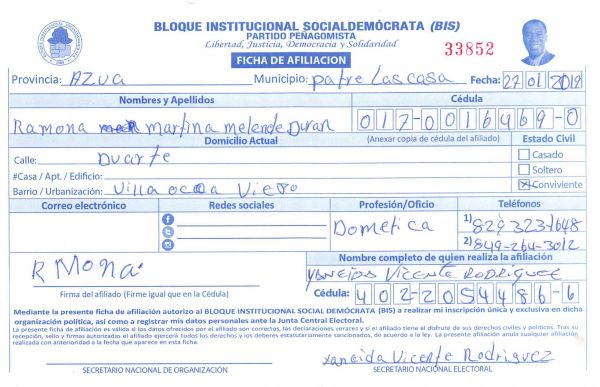 BLOQUE INSTITUCIONAL SOCIALDEMÓCRATA (BIS)
PARTIDO PEÑAGOMISTA
Libertad, Justicia, Democracia y Solidaridad
FICHA DE AFILIACION
33852
Provincia: AZUA Municipio: patre Lascasa Fecha: 27 01 2019
Nombres y Apellidos Cédula
Ramona martina melende Duran 017-0016469-0
Domicilio Actual (Anexar copia de cédula del afiliado) Estado Civil
Calle: Duarte Casado
#Casa / Apt. / Edificio: Soltero
Barrio / Urbanización: Villa ocoa Viejo Conviviente
Correo electrónico Redes sociales Profesión/Oficio Teléfonos
Dometica 1) 829 323-1648
2) 849-264-3012
Nombre completo de quien realiza la afiliación
R Mona Yaneida Vicente Rodriguez
Firma del afiliado (Firme igual que en la Cédula) Cédula: 402-2054486-6
Mediante la presente ficha de afiliación autorizo al BLOQUE INSTITUCIONAL SOCIAL DEMÓCRATA (BIS) a realizar mi inscripción única y exclusiva en dicha
organización política, así como a registrar mis datos personales ante la Junta Central Electoral.
La presente ficha de afiliación es válida si los datos ofrecidos por el afiliado son correctos, las declaraciones veraces y si el afiliado tiene el disfrute de sus derechos civiles y políticos. Tras su
recepción, sello y firmas autorizadas el afiliado ejercerá todo los derechos y los deberes estatutariamente sancionados, de acuerdo a la ley. La presente afiliación anula cualquier afiliación
realizada con anterioridad a la fecha que aparece en esta ficha.
Yaneida Vicente Rodriguez
SECRETARIO NACIONAL DE ORGANIZACIÓN SECRETARIO NACIONAL ELECTORAL